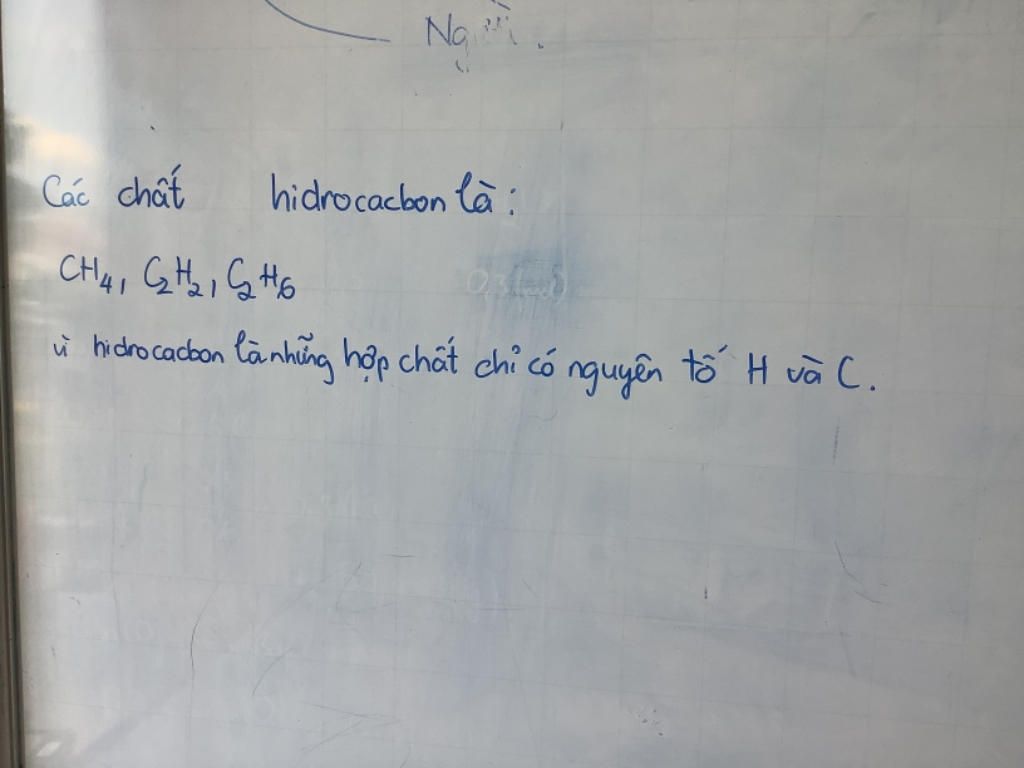 Các chất hidrocacbon là:
CH₄, C₂H₂, C₂H₆
vì hidrocacbon là những hợp chất chỉ có nguyên tố H và C.